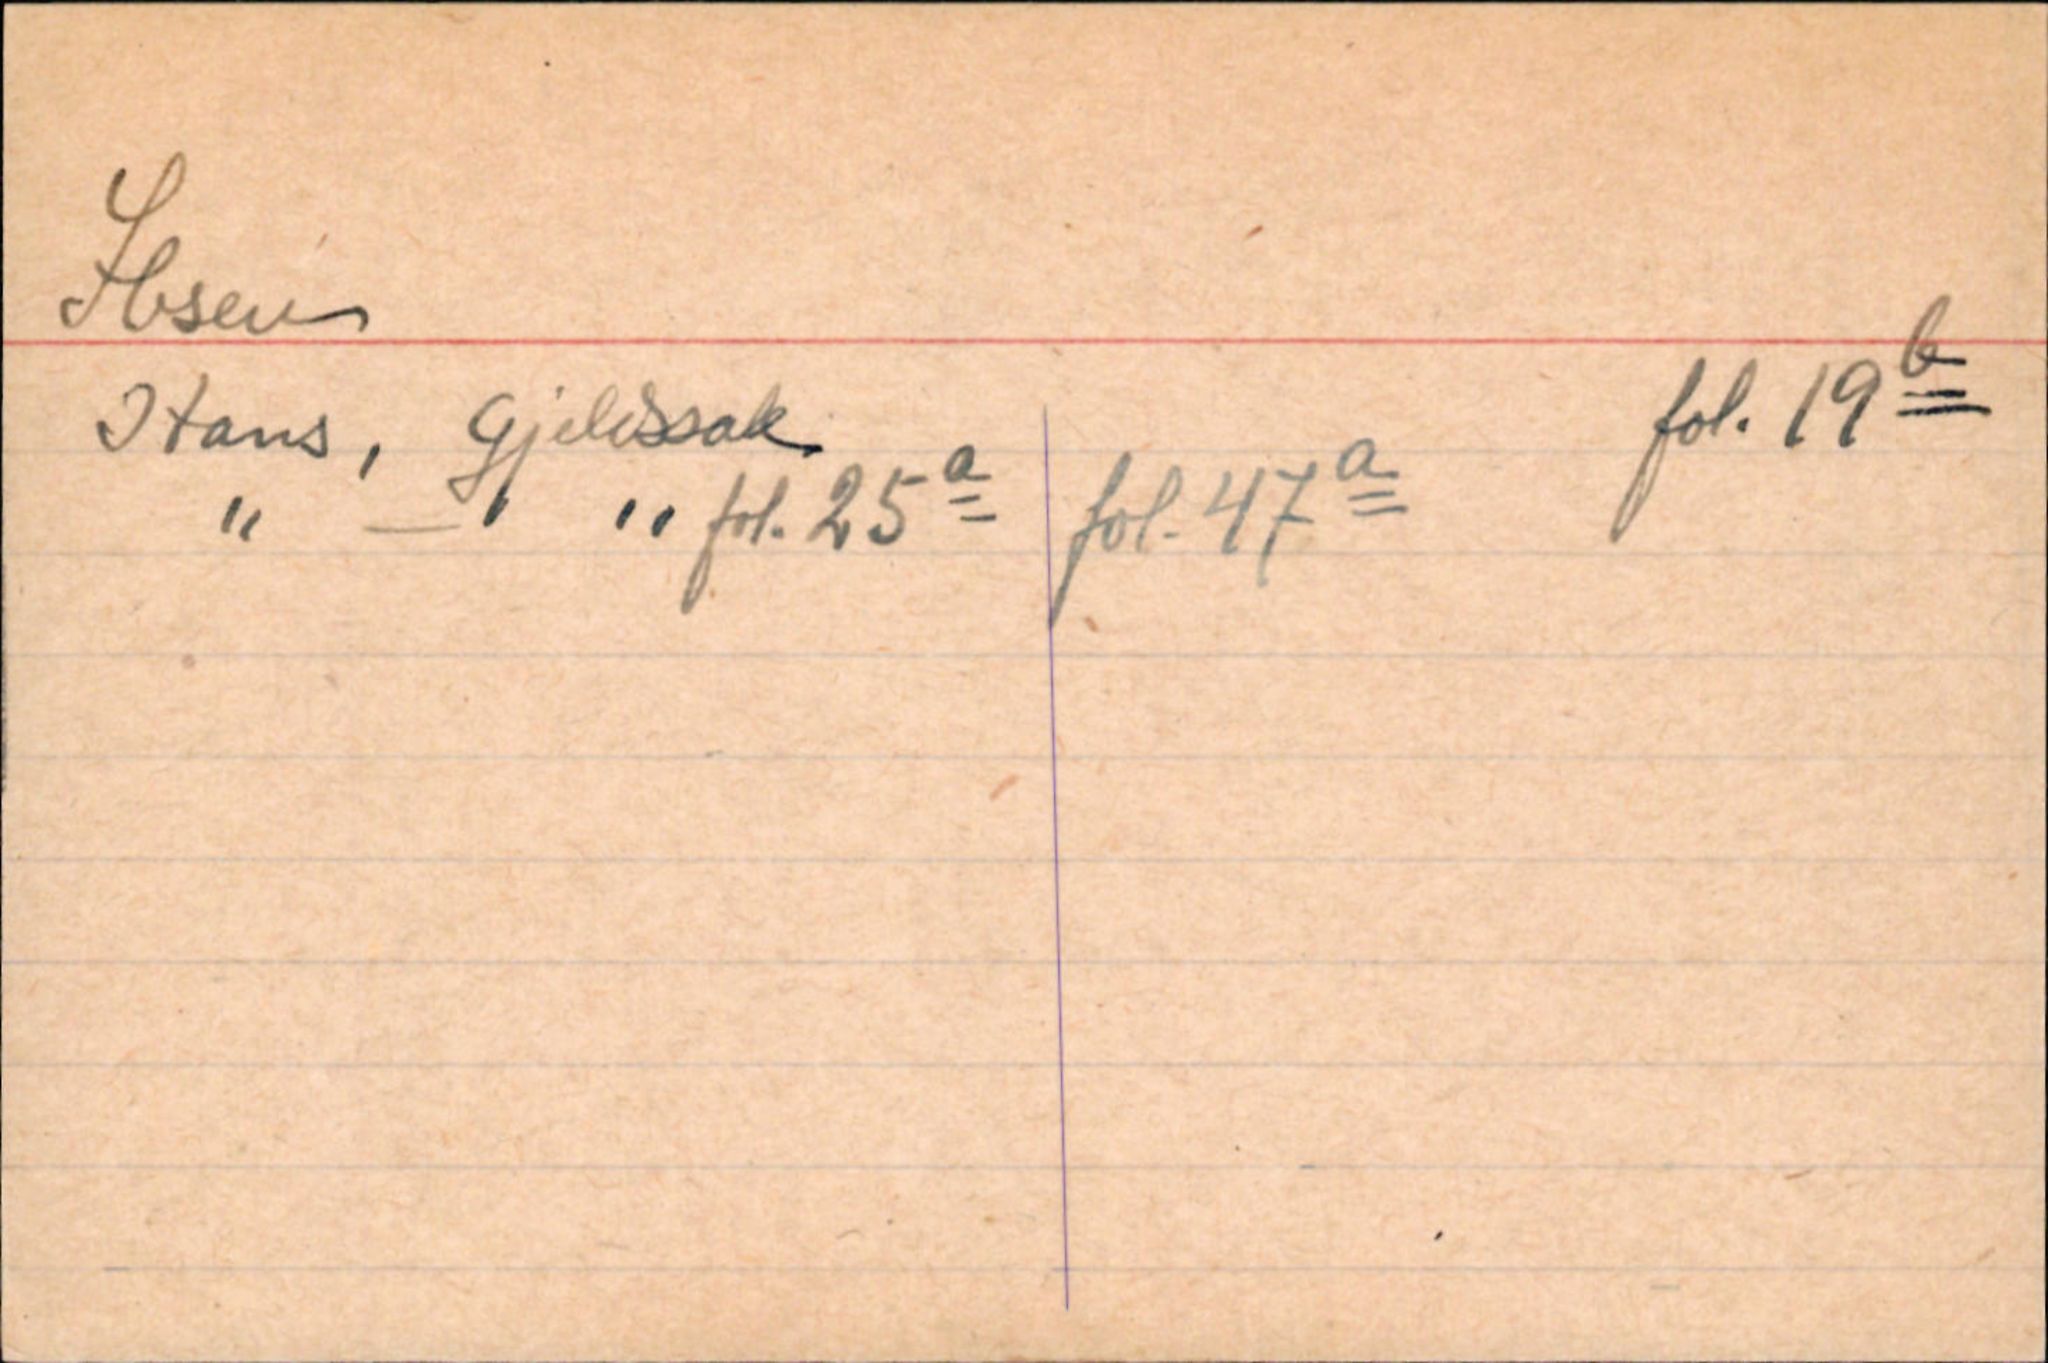 Ibsen
Hans, Gjeldssak fol. 19b
" — " " fol. 25a fol. 47a